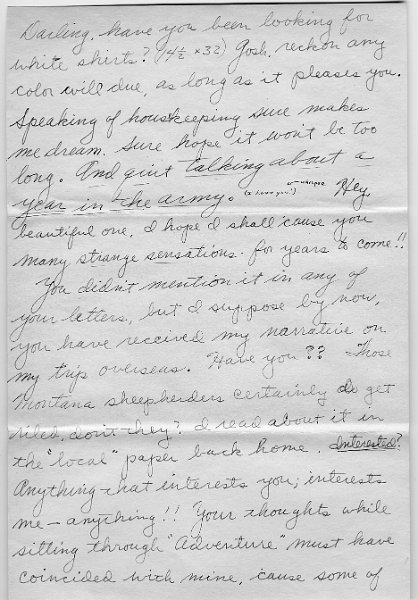 Darling, have you been looking for
white shirts? (14½ x 32) Gosh, reckon any
color will due, as long as it pleases you.
Speaking of housekeeping sure makes
me dream. Sure hope it won't be too
long. And quit talking about a
year in the army. Hey,
beautiful one, I hope I shall 'cause you
many strange sensations. for years to come!!
You didn't mention it in any of
your letters, but I suppose by now,
you have received my narrative on
my trip overseas. Have you?? Those
Montana sheepherders certainly do get
riled, don't they? I read about it in
the "local" paper back home. Interested?
Anything that interests you; interests
me — anything!! Your thoughts while
sitting through "Adventure" must have
coincided with mine, 'cause some of